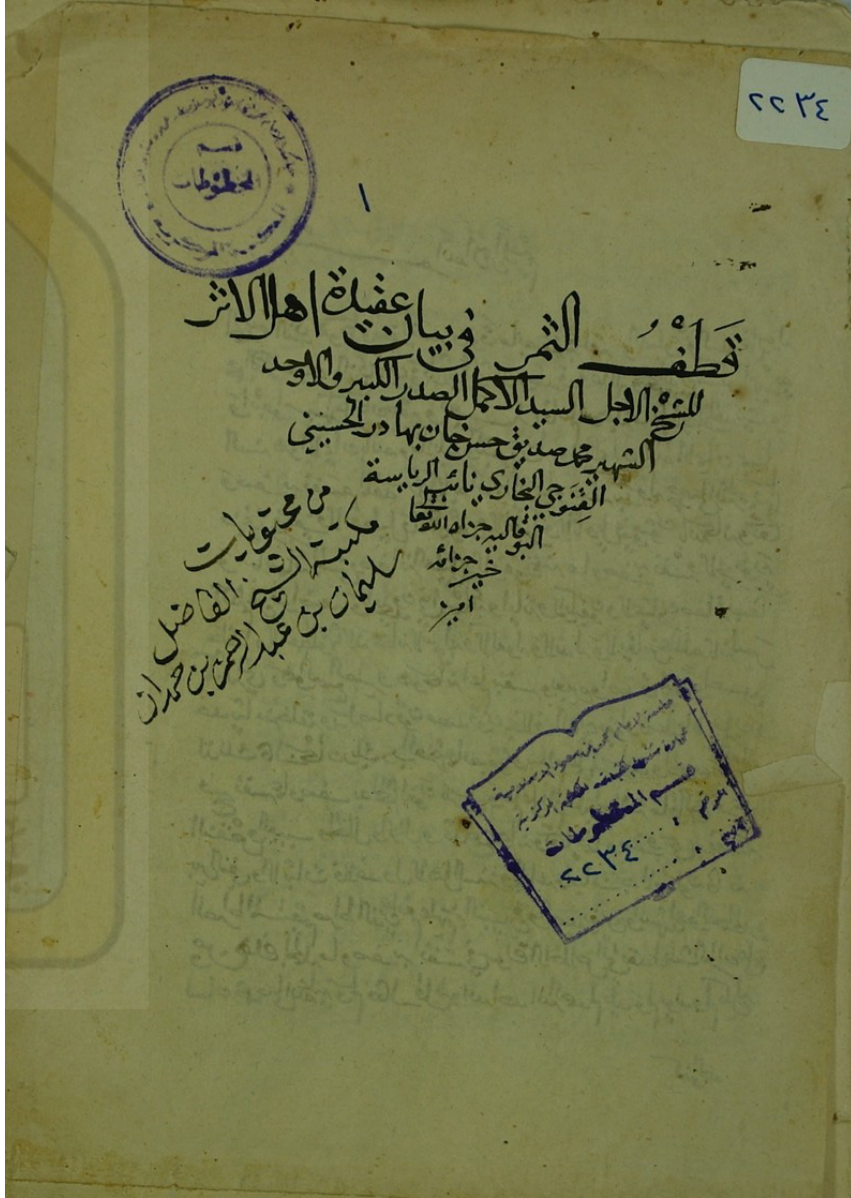 ٢٢٣٤
قسم
المخطوطات
١
قَطْفُ الثمر في بيان عقيدة اهل الاثر
للشيخ الاجل السيد الاكمل الصدر الكبير والاوحد
الشهير محمد صديق حسن خان بهادر الحسيني
القِنَّوجي البخاري نائب الرياسة
البوفالية جزاه الله تعالى
خير جزائه
امين
من محتويات
مكتبة الشيخ الفاضل
سليمان بن عبد الرحمن بن حمدان
جامعة الإمام محمد بن سعود الإسلامية
المكتبة المركزية
قسم المخطوطات
رقم ٢٢٣٤